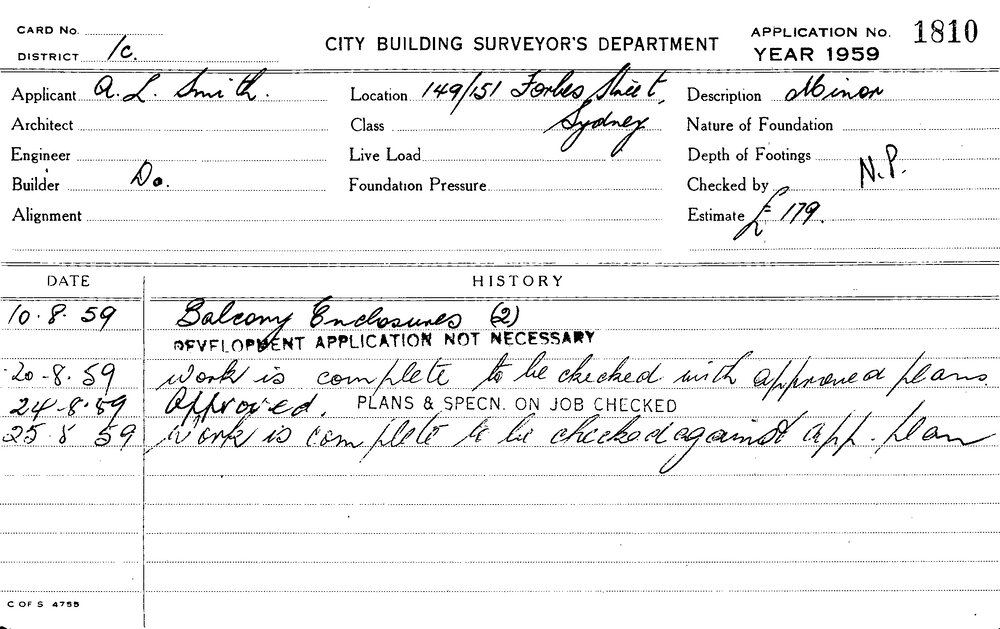 CARD No.
DISTRICT 1c.
CITY BUILDING SURVEYOR'S DEPARTMENT
APPLICATION No. 1810
YEAR 1959
Applicant A. L. Smith. Location 149/151 Forbes Street, Description Minor
Architect Class Sydney Nature of Foundation
Engineer Live Load Depth of Footings
Builder Do. Foundation Pressure Checked by N.P.
Alignment Estimate £ 179.
DATE HISTORY
10.8.59 Balcony Enclosures (2)
DEVELOPMENT APPLICATION NOT NECESSARY
20-8.59 Work is complete to be checked with approved plans.
24-8.59 Approved. PLANS & SPECN. ON JOB CHECKED
25.8 59 Work is complete to be checked against app. plan
C OF S 4755